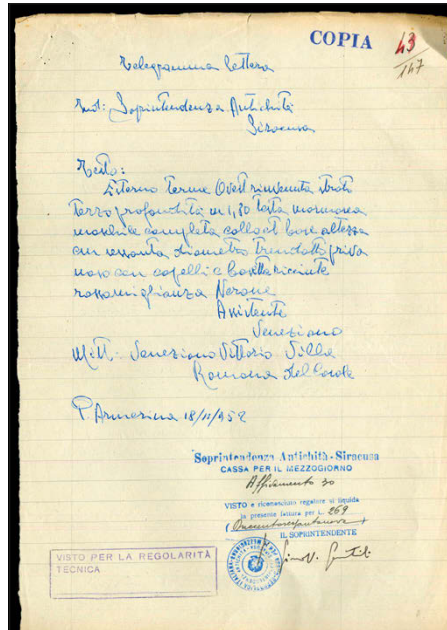 COPIA 43
147
Telegramma lettera
Ind: Soprintendenza Antichità
Siracusa
Testo:
Esterno terme Ovest rinvenuta strato
terzo profondità m 1,80 testa marmorea
maschile completa collo et base altezza
cm sessanta diametro trentotto priva
naso con capelli e barbetta ricciute
rassomiglianza Nerone
Assistente
Veneziano
Mitt: Veneziano Vittorio Villa
Romana del Casale
P. Armerina 18/11/952
Soprintendenza Antichità - Siracusa
CASSA PER IL MEZZOGIORNO
Affidamento 30
VISTO e riconosciuto regolare si liquida
la presente fattura per L. 269
(Duecentosessantanove)
IL SOPRINTENDENTE
VISTO PER LA REGOLARITÀ
TECNICA